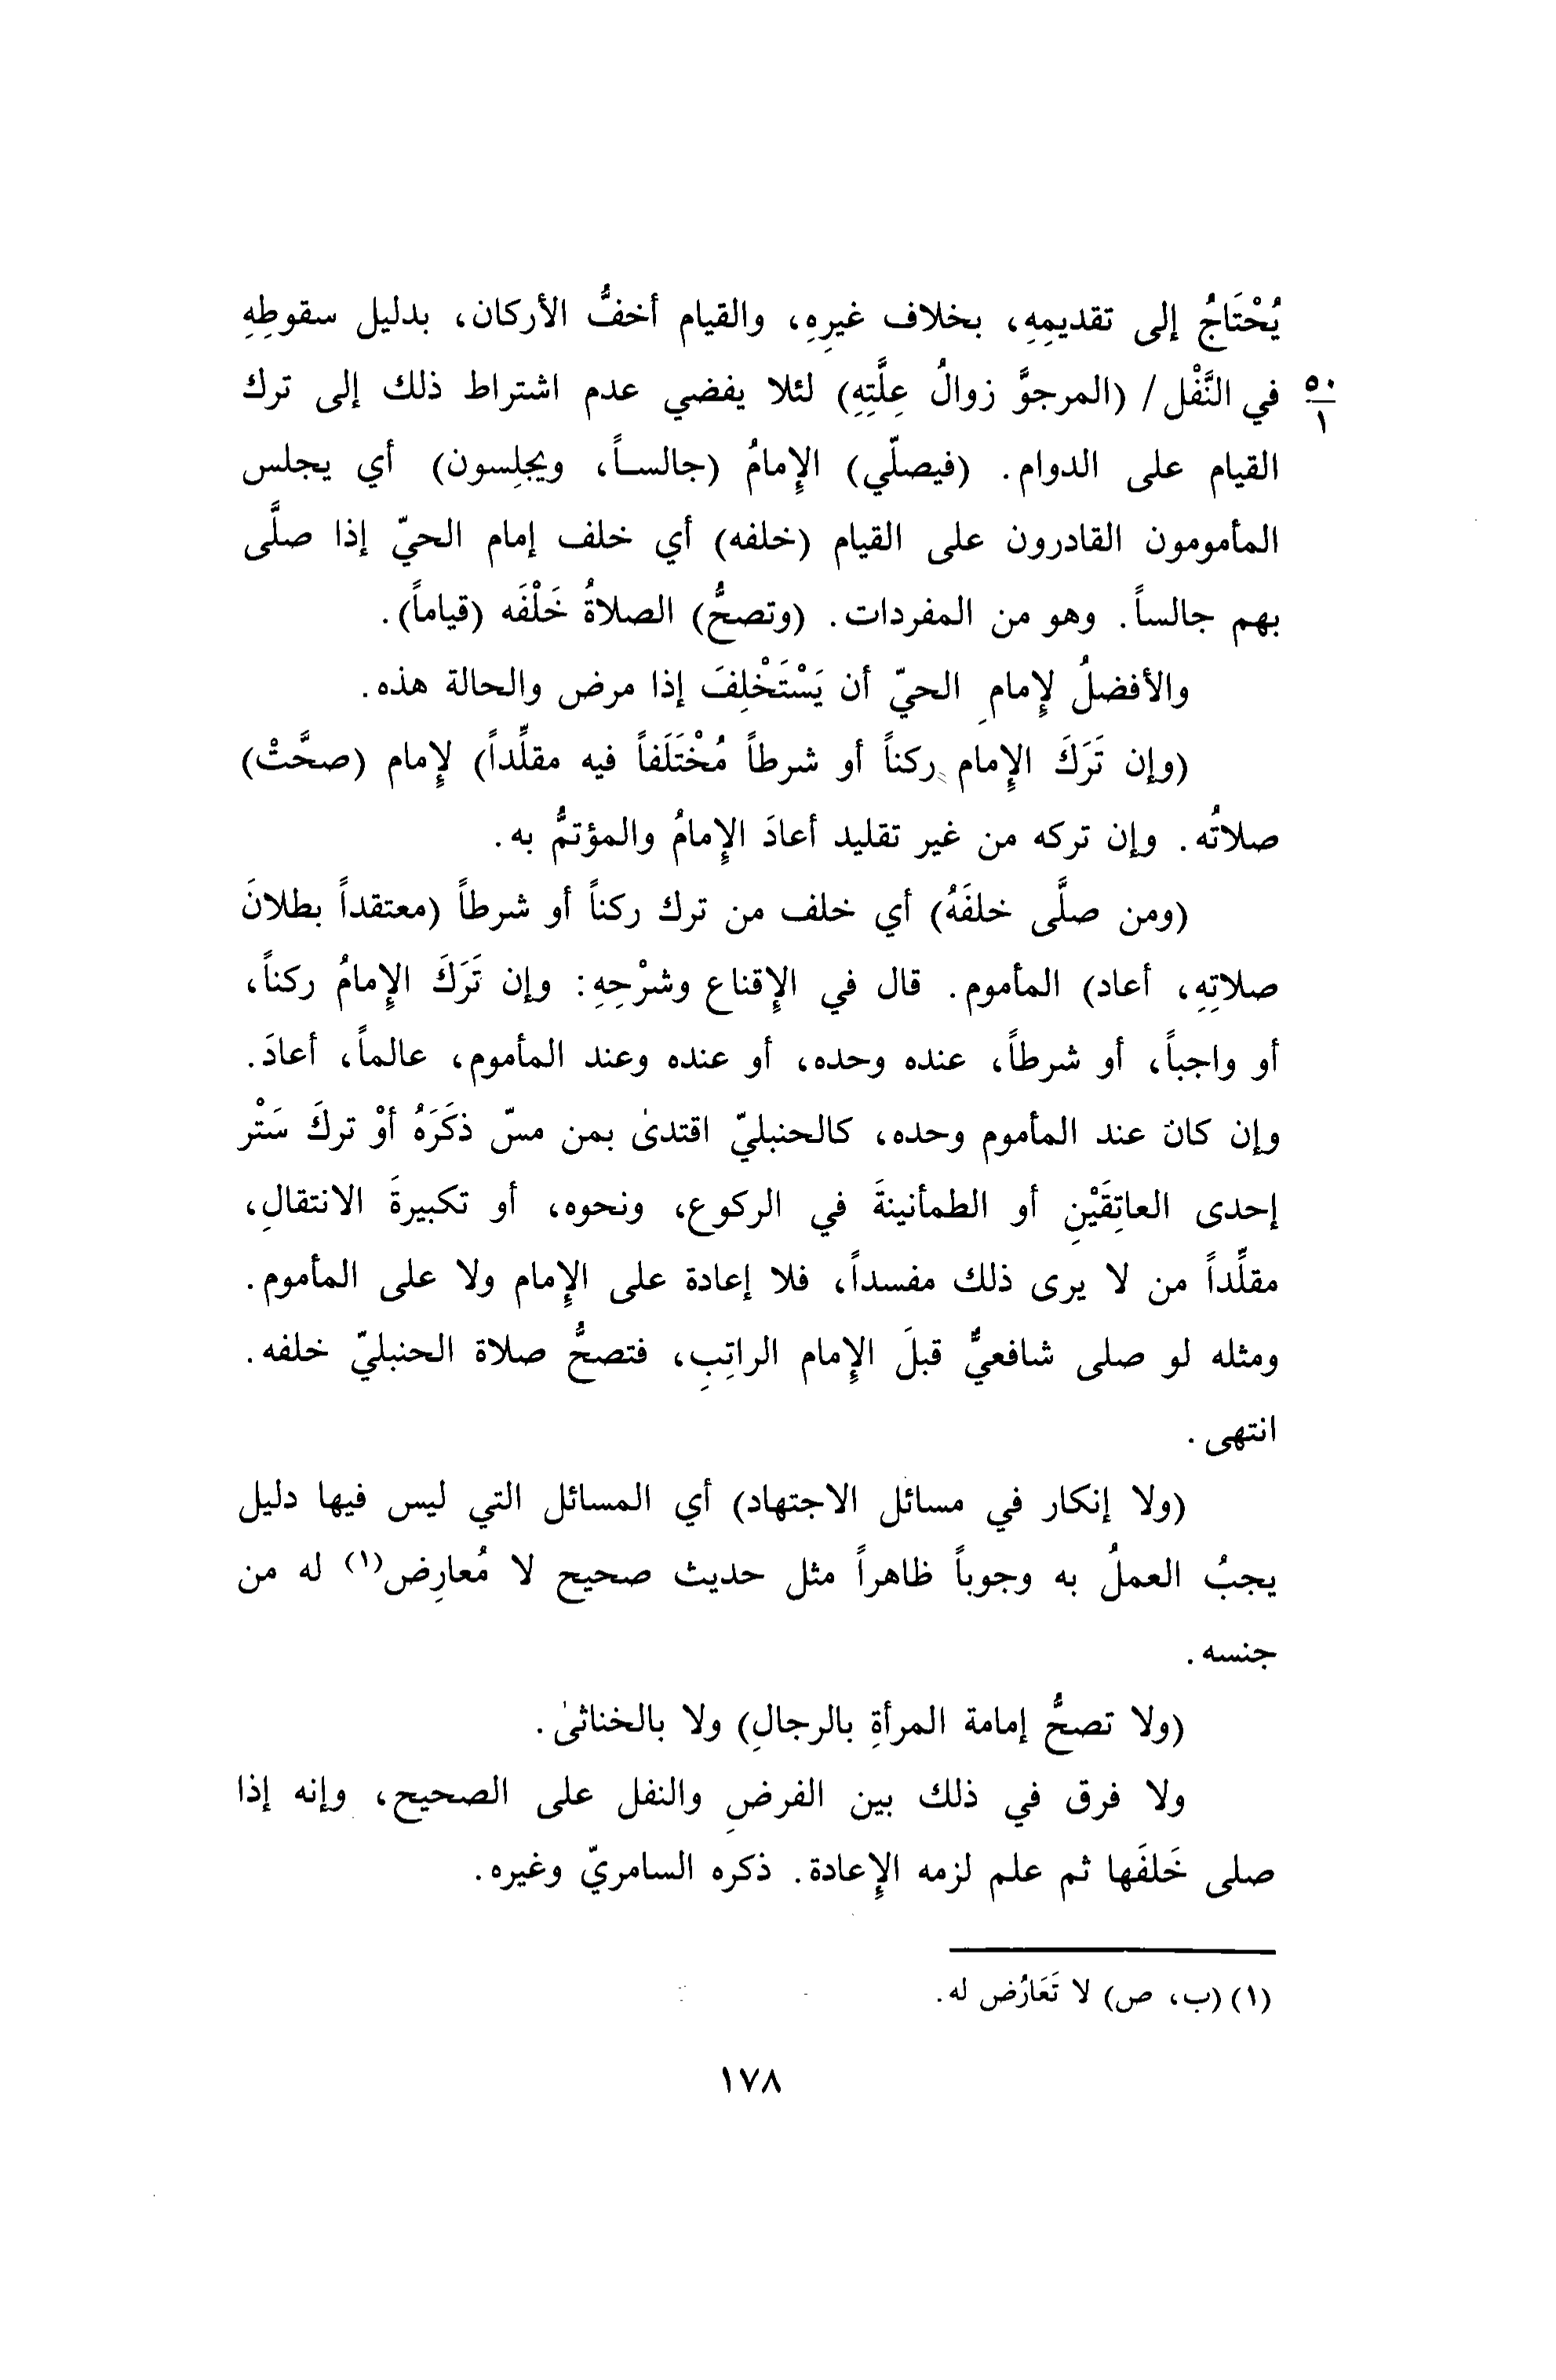 يُحْتَاجُ إلى تقديمِهِ، بخلاف غيرِهِ، والقيام أخفُّ الأركان، بدليل سقوطِهِ
٥٠
١
في النَّفْل / (المرجوَّ زوالُ عِلَّتِهِ) لئلا يفضي عدم اشتراط ذلك إلى ترك
القيام على الدوام. (فيصلّي) الإِمامُ (جالساً، ويجلِسون) أي يجلس
المأمومون القادرون على القيام (خلفه) أي خلف إمام الحيّ إذا صلَّى
بهم جالساً. وهو من المفردات. (وتصحُّ) الصلاةُ خَلْفَه (قياماً).
والأفضلُ لإِمامِ الحيّ أن يَسْتَخْلِفَ إذا مرض والحالة هذه.
(وإن تَرَكَ الإِمام ركناً أو شرطاً مُخْتَلَفاً فيه مقلِّداً) لإِمام (صحَّتْ)
صلاتُه. وإن تركه من غير تقليد أعادَ الإِمامُ والمؤتمُّ به.
(ومن صلَّى خلفَهُ) أي خلف من ترك ركناً أو شرطاً (معتقداً بطلانَ
صلاتِهِ، أعاد) المأموم. قال في الإِقناع وشرْحِهِ: وإن تَرَكَ الإِمامُ ركناً،
أو واجباً، أو شرطاً، عنده وحده، أو عنده وعند المأموم، عالماً، أعادَ.
وإن كان عند المأموم وحده، كالحنبليّ اقتدىٰ بمن مسّ ذكَرَهُ أوْ تركَ سَتْر
إحدى العاتِقَيْنِ أو الطمأنينةَ في الركوع، ونحوه، أو تكبيرةَ الانتقالِ،
مقلِّداً من لا يرى ذلك مفسداً، فلا إعادة على الإِمام ولا على المأموم.
ومثله لو صلى شافعيٌّ قبلَ الإِمام الراتِبِ، فتصحُّ صلاة الحنبليّ خلفه.
انتهى.
(ولا إنكار في مسائل الاجتهاد) أي المسائل التي ليس فيها دليل
يجبُ العملُ به وجوباً ظاهراً مثل حديث صحيح لا مُعارِض(١) له من
جنسه.
(ولا تصحُّ إمامة المرأةِ بالرجالِ) ولا بالخناثىٰ.
ولا فرق في ذلك بين الفرضِ والنفل على الصحيح، وإنه إذا
صلى خَلفَها ثم علم لزمه الإِعادة. ذكره السامريّ وغيره.
(١) (ب، ص) لا تَعَارُض له.
١٧٨